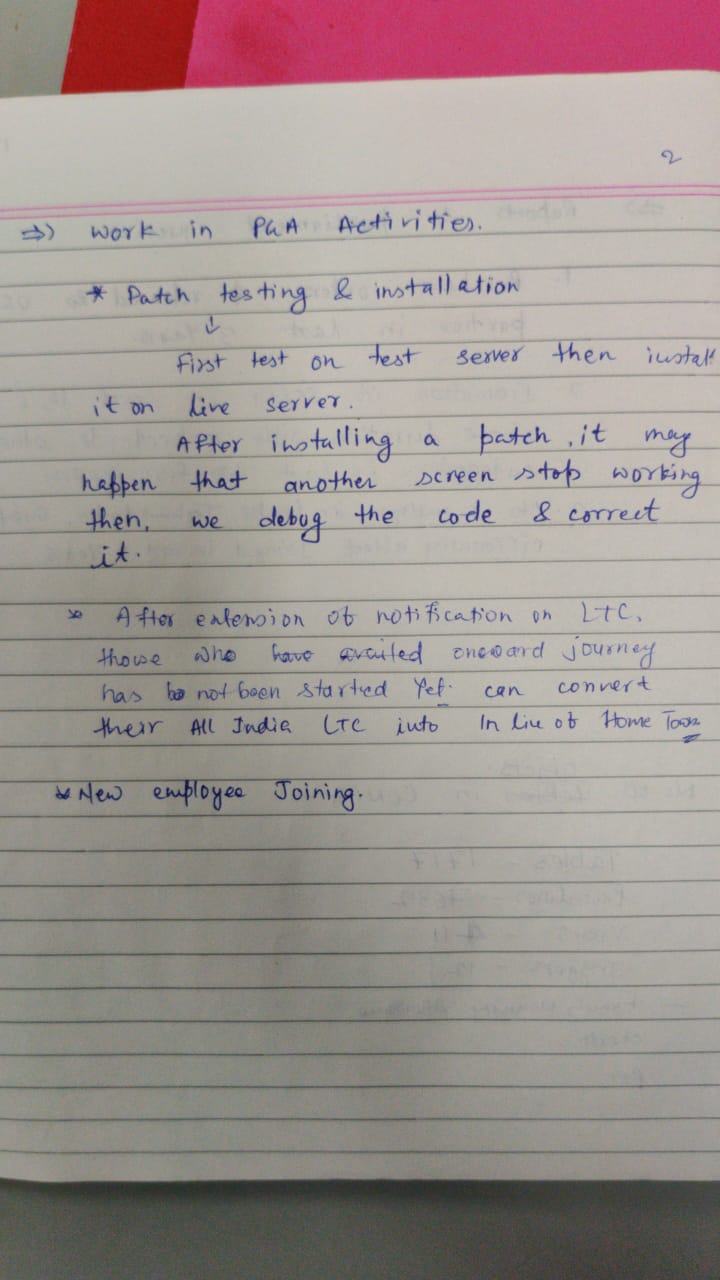 2
⇒) Work in P&A Activities.
* Patch testing & installation
↓
First test on test server then install
it on live server.
After installing a patch, it may
happen that another screen stop working
then, we debug the code & correct
it.
* After extension of notification on LTC,
those who have availed onward journey
has not been started Yet. can convert
their All India LTC into In liu of Home Town
* New employee Joining.